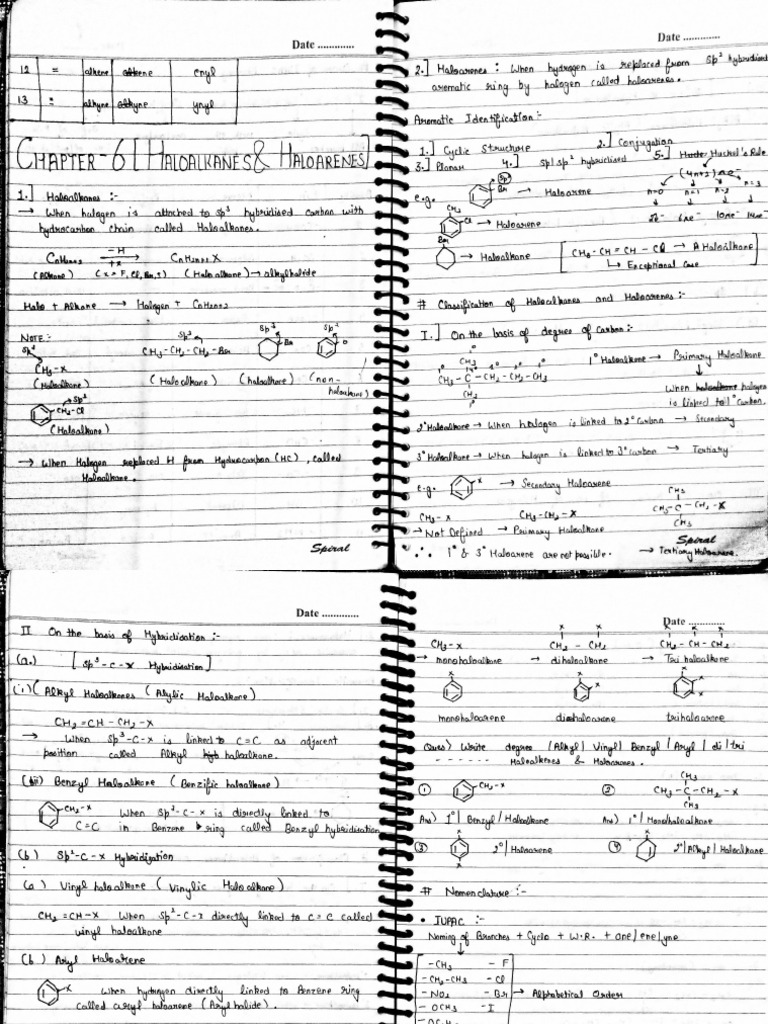 Date .............
12 = alkene ene enyl
13 = alkyne yne ynyl
CHAPTER-6 [HALOALKANES & HALOARENES]
1.] Haloalkanes :-
→ When halogen is attached to sp³ hybridised carbon with
hydrocarbon chain called Haloalkanes.
-H
CnH2n+2 → CnH2n+1 X
+X
(Alkane) (X = F, Cl, Br, I) (Haloalkane) → alkylhalide
Halo + Alkane → Halogen + CnH2n+2
NOTE:-
sp³ sp³ sp³ sp²
CH₃-X CH₃-CH₂-CH₂-Br Br
(Haloalkane) (Haloalkane) (haloalkane) (non-haloalkane)
sp³
CH₂-Cl
(Haloalkane)
→ When Halogen replaced H from Hydrocarbon (HC), called
Haloalkane.
Spiral
Date .............
2.] Haloarenes : When hydrogen is replaced from sp² hybridised
aromatic ring by halogen called haloarenes.
Aromatic Identification :-
1.] Cyclic Structure 2.] Conjugation
3.] Planar 4.] sp/sp² hybridised 5.] Huckel's Rule
(4n+2)πe⁻
n=0 n=1 n=2 n=3
2e⁻ 6πe⁻ 10πe⁻ 14πe⁻
e.g. sp² Br → Haloarene
CH₃ Cl → Haloarene
Br → Haloalkane
[CH₃-CH=CH-Cl → A Haloalkane
↳ Exceptional Case]
# Classification of Haloalkanes and Haloarenes :-
I.] On the basis of degree of Carbon :-
CH₃
CH₃-C-CH₂-CH₂-CH₃
CH₃
1° Haloalkane → Primary Haloalkane
When halogen
is linked to 1° carbon.
2° Haloalkane → When halogen is linked to 2° Carbon → Secondary
3° Haloalkane → When halogen is linked to 3° carbon → Tertiary
e.g. X → Secondary Haloarene
CH₃
CH₃-X CH₃-CH₂-X CH₃-C-X
CH₃
→ Not Defined → Primary Haloalkane
∴ 1° & 3° Haloarene are not possible. → Tertiary Haloarene.
Spiral
Date .............
II On the basis of Hybridisation :-
(a.) [sp³-C-X Hybridisation]
(i) (Alkyl Haloalkenes (Alylic Haloalkane)
CH₂=CH-CH₂-X
→ When sp³-C-X is linked to C=C as adjacent
position called Alkyl haloalkane.
Benzyl Haloalkane (Benzific haloalkane)
CH₂-X When sp³-C-X is directly linked to
C=C in Benzene ring called Benzyl hybridisation
(b) sp²-C-X Hybridisation
(a) Vinyl haloalkane (Vinylic Haloalkane)
CH₂=CH-X When sp²-C-X directly linked to C=C called
vinyl haloalkane
(b) Aryl Haloarene
X When hydrogen directly linked to Benzene ring
called aryl haloarene (Arylhalide).
Date .............
X X X X X
CH₃-X CH₂-CH₂ CH₂-CH-CH₂
→ monohaloalkane → dihaloalkane → Tri haloalkane
X X X X X X
monohaloarene dihaloarene trihaloarene
Ques) Write degree /Alkyl/ Vinyl/ Benzyl /Aryl /di/tri
Haloalkenes & Haloarenes.
① CH₂-X ② CH₃
CH₃-C-CH₂-X
CH₃
Ans) 1°| Benzyl/Haloalkane Ans) 1°/Monohaloalkane
③ X 2°/Haloarene ④ X 2°/Alkyl/Haloalkane
# Nomenclature :-
• IUPAC :-
Naming of Branches + Cyclo + W.R. + ane/ene/yne
-CH₃ -F
-CH₂-CH₃ -Cl
-NO₂ -Br → Alphabetical Order
-OCH₃ -I